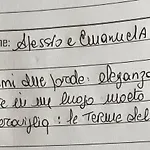 ME: Alessio e Emanuela
due parole: eleganza
in un luogo molto
meraviglia: le Terme del